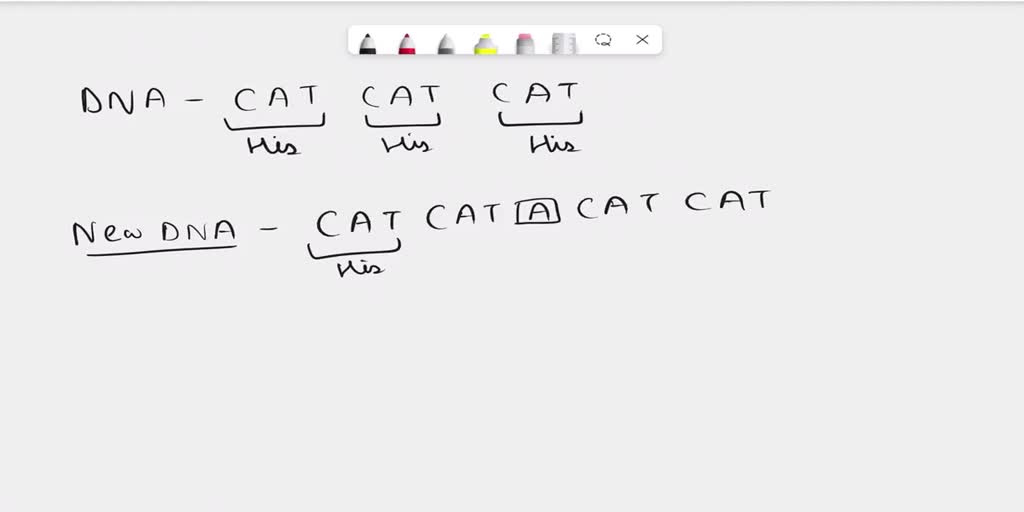 DNA - CAT CAT CAT
His His His
New DNA - CAT CAT A CAT CAT
His